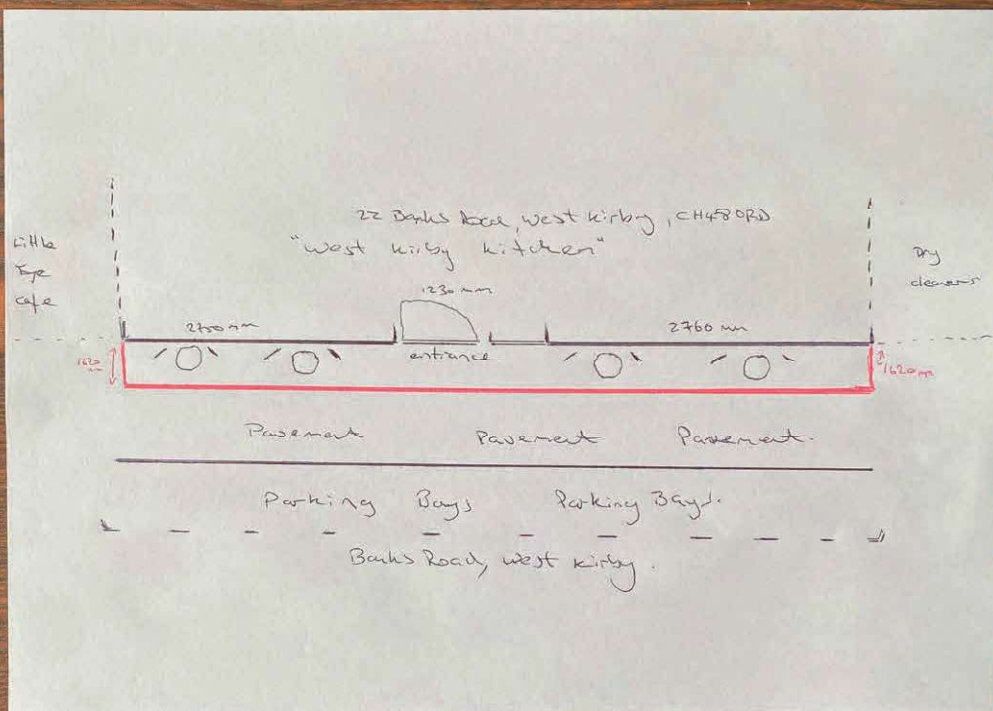 22 Banks Road, West Kirby, CH48 0RD
"West Kirby Kitchen"
Little
Eye
Cafe
Dry
cleaners
1230 mm
2750 mm
2760 mm
entrance
1620
mm
1620 mm
Pavement Pavement Pavement.
Parking Bays Parking Bays.
Banks Road, West Kirby.